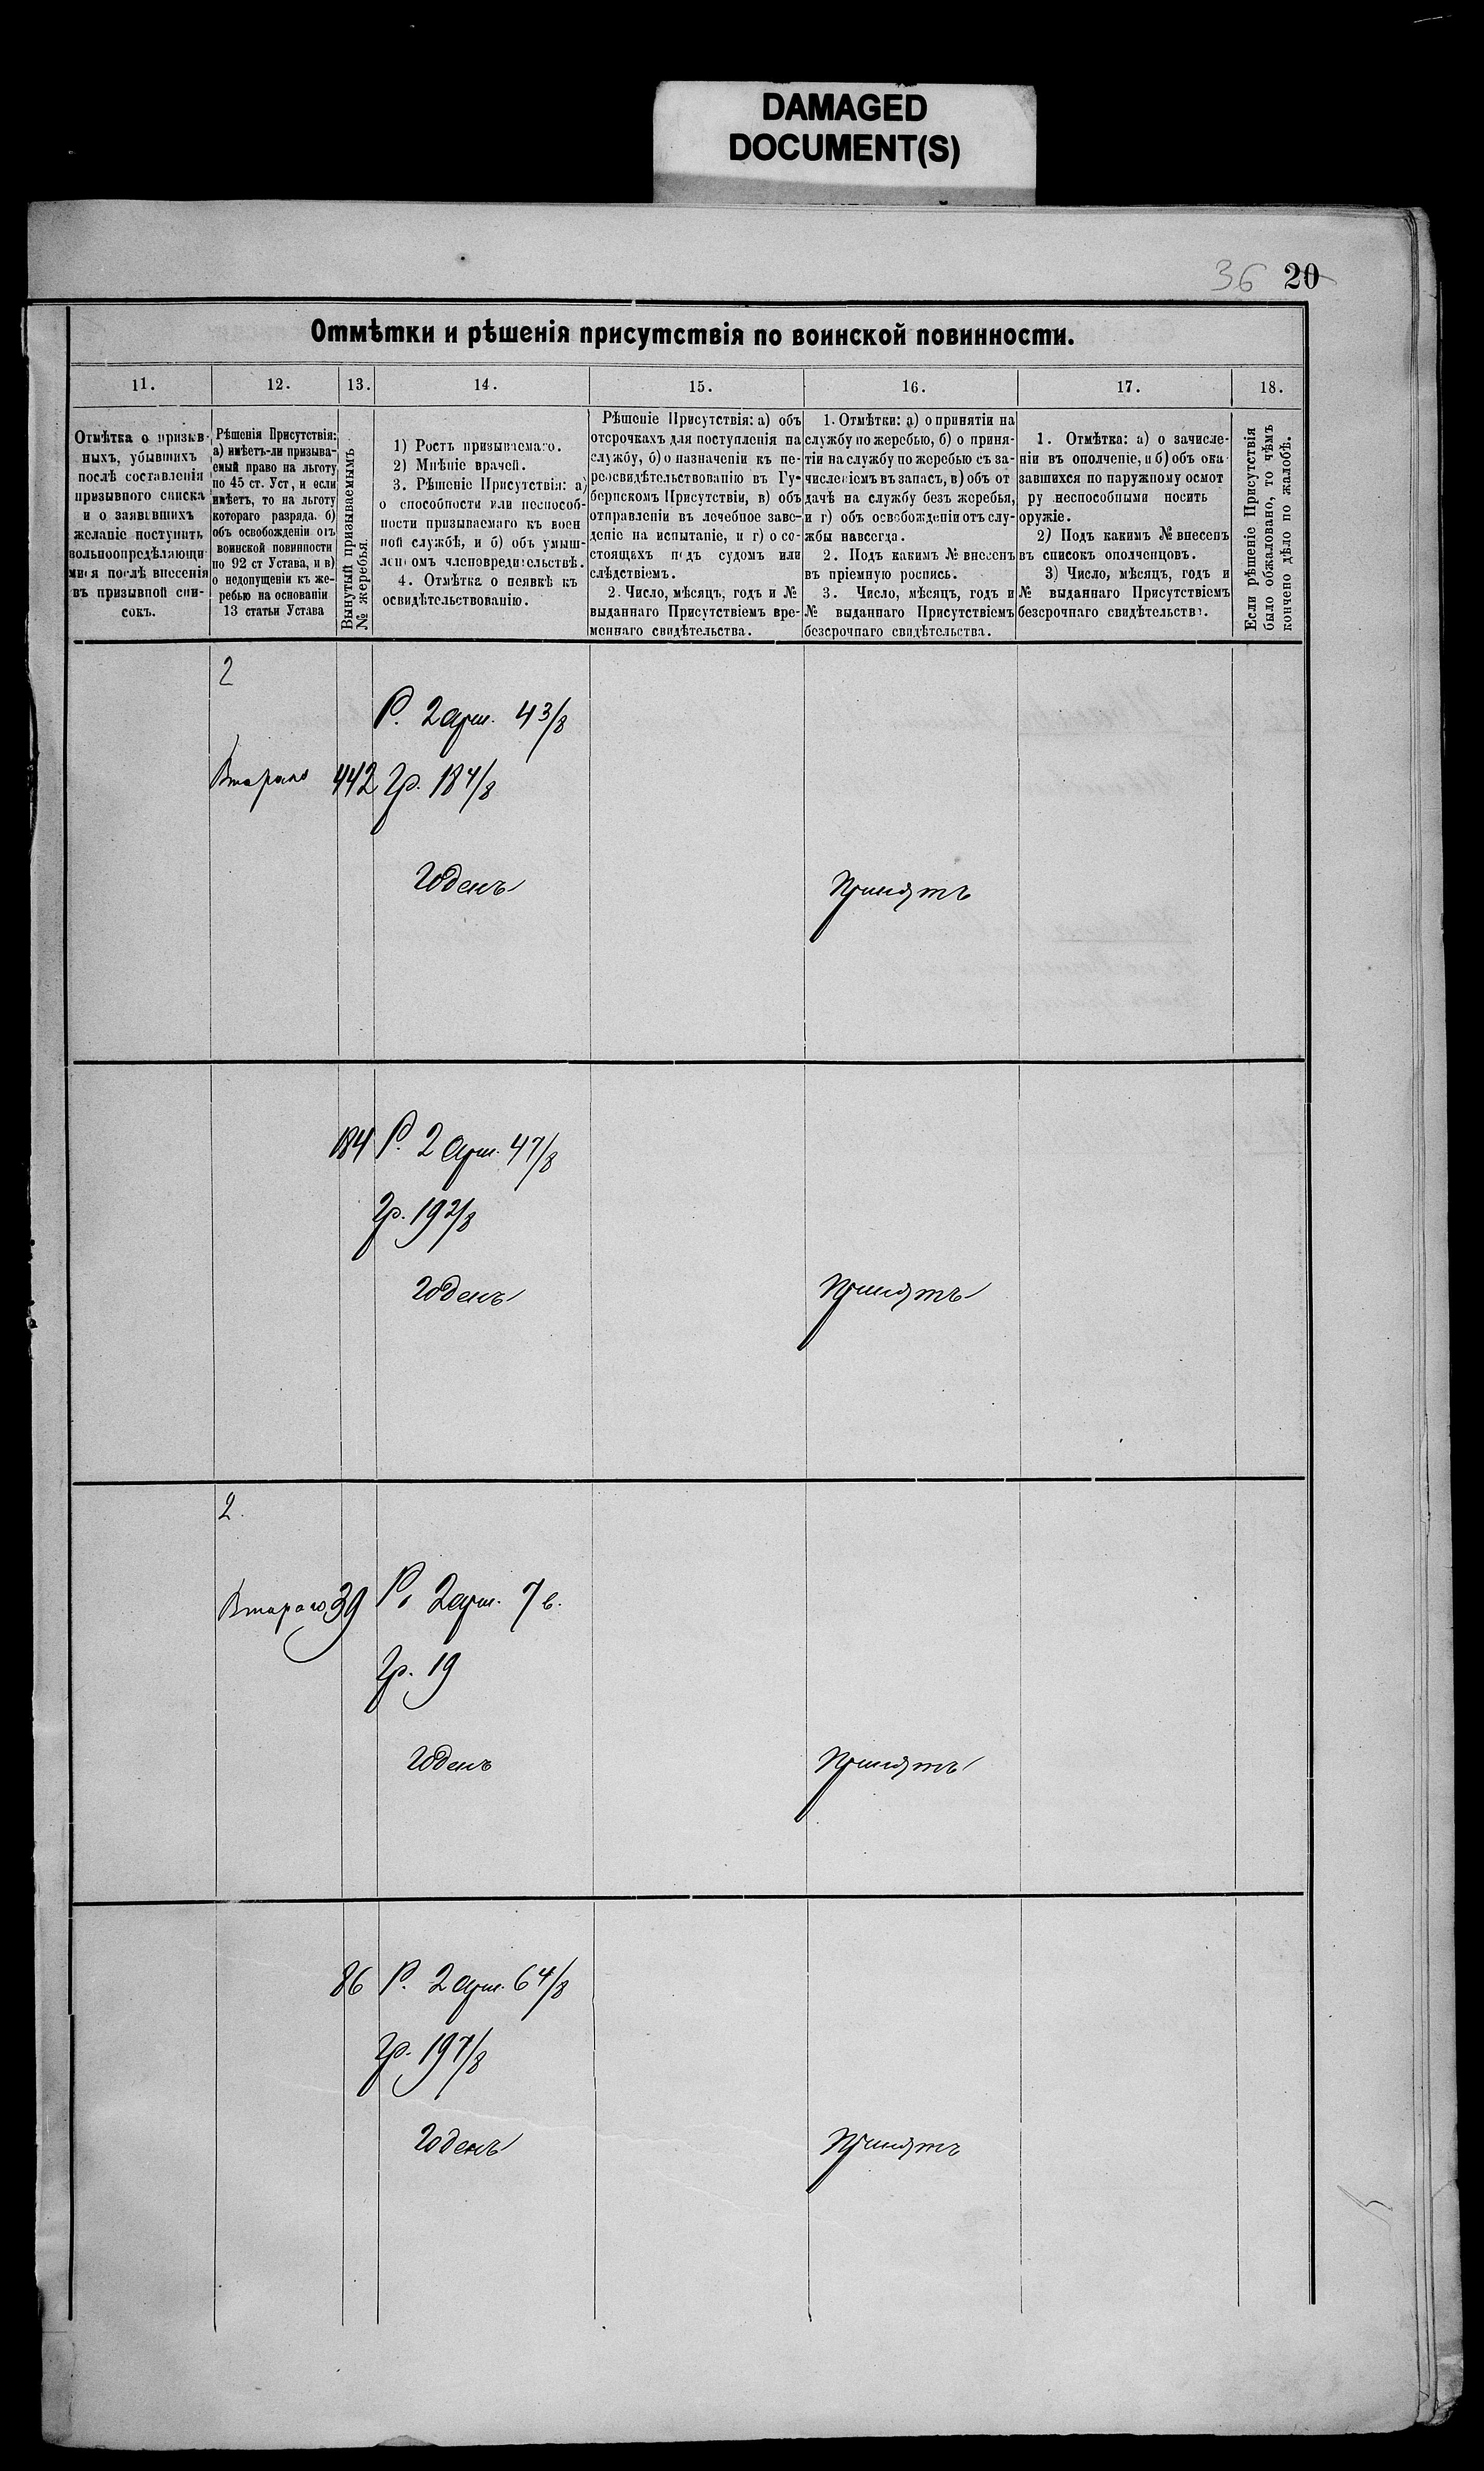 DAMAGED
DOCUMENT(S)
36 20
Отмѣтки и рѣшенія присутствія по воинской повинности.
11. 12. 13. 14. 15. 16. 17. 18.
Отмѣтка о призыв-
ныхъ, убывшихъ
послѣ составленія
призывного списка
и о заявившихъ
желаніе поступить
вольноопредѣляющи
мися послѣ внесенія
въ призывной спи-
сокъ.
Рѣшенія Присутствія:
а) имѣетъ-ли призывае-
мый право на льготу
по 45 ст. Уст, и если
имѣетъ, то на льготу
котораго разряда. б)
объ освобожденіи отъ
воинской повинности
по 92 ст Устава, и в)
о недопущеніи къ же-
ребью на основаніи
13 статьи Устава
Вынутый призываемымъ
№ жеребья.
1) Ростъ призываемаго.
2) Мнѣніе врачей.
3. Рѣшеніе Присутствія: а)
о способности или неспособ-
ности призываемаго къ воен
ной службѣ, и б) объ умыш-
ленномъ членовредительствѣ.
4. Отмѣтка о неявкѣ къ
освидѣтельствованію.
Рѣшеніе Присутствія: а) объ
отсрочкахъ для поступленія на
службу, б) о назначеніи къ пе-
реосвидѣтельствованію въ Гу-
бернскомъ Присутствіи, в) объ
отправленіи въ лечебное заве-
деніе на испытаніе, и г) о со-
стоящахъ подъ судомъ или
слѣдствіемъ.
2. Число, мѣсяцъ, годъ и №
выданнаго Присутствіемъ вре-
меннаго свидѣтельства.
1. Отмѣтки: а) о принятіи на
службу по жеребью, б) о приня-
тіи на службу по жеребью съ за-
численіемъ въ запасъ, в) объ от
дачѣ на службу безъ жеребья,
и г) объ освобожденіи отъ слу-
жбы навсегда.
2. Подъ какимъ № внесенъ
въ пріемную роспись.
3. Число, мѣсяцъ, годъ и
№ выданнаго Присутствіемъ
безсрочнаго свидѣтельства.
1. Отмѣтка: а) о зачисле-
ніи въ ополченіе, и б) объ ока
завшихся по наружному осмот
ру неспособными носить
оружіе.
2) Подъ какимъ № внесенъ
въ списокъ ополченцовъ.
3) Число, мѣсяцъ, годъ и
№ выданнаго Присутствіемъ
безсрочнаго свидѣтельства.
Если рѣшеніе Присутствія
было обжаловано, то чѣмъ
кончено дѣло по жалобѣ.
2
Р. 2 арш. 4 3/8
Втораго 442 Гр. 18 4/8
Годенъ Принятъ
184 Р. 2 арш. 4 7/8
Гр. 19 2/8
Годенъ Принятъ
2.
Втораго 39 Р. 2 арш. 7 в.
Гр. 19
Годенъ Принятъ
86 Р. 2 арш. 6 4/8
Гр. 19 7/8
Годенъ Принятъ